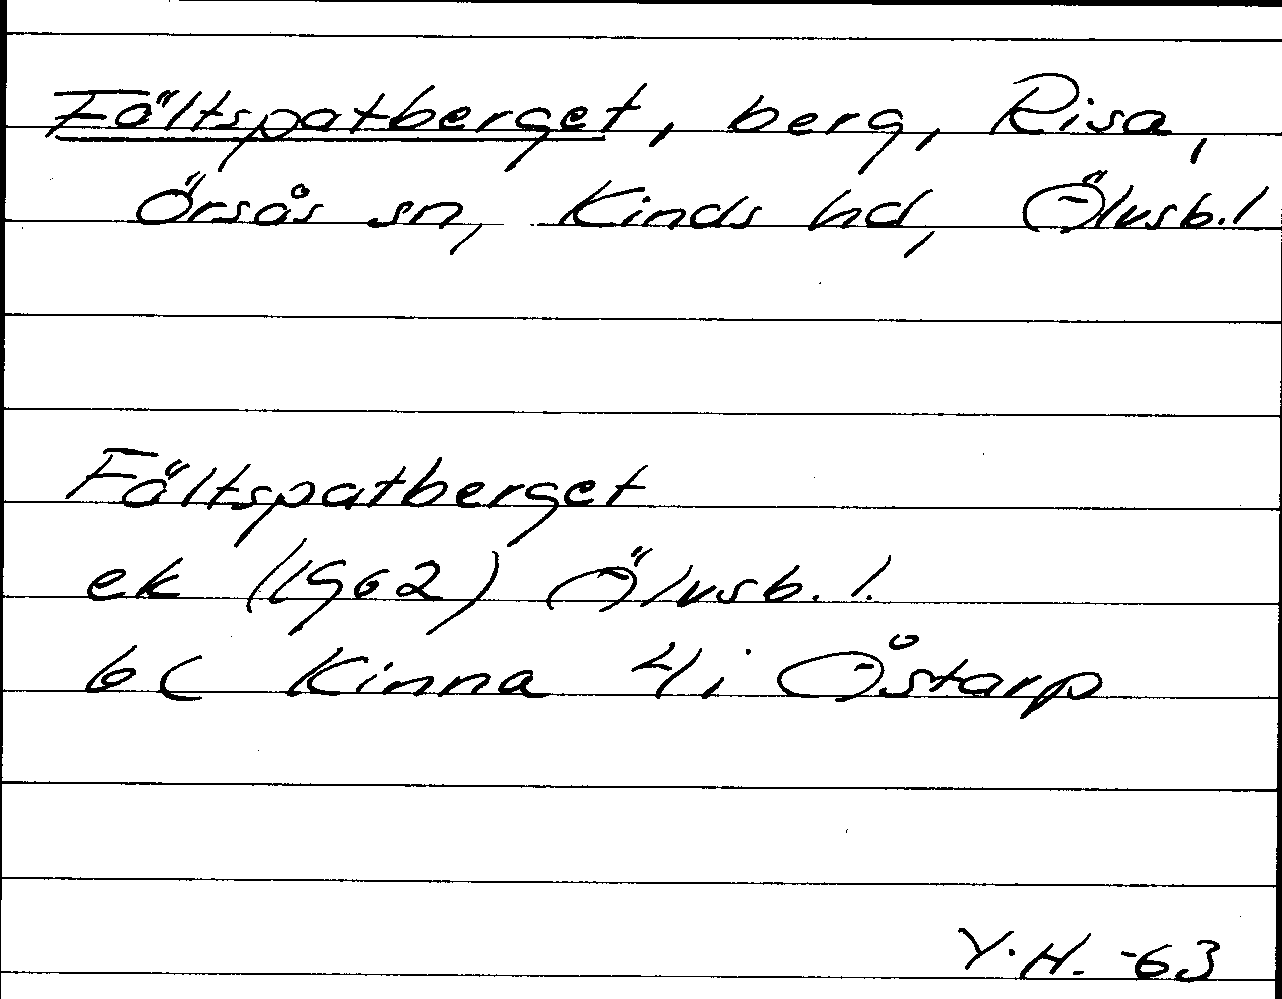 Fältspatberget, berg, Risa,
Örsås sn, Kinds hd, Älvsb.l
Fältspatberget
ek (1962) Älvsb.l.
6C Kinna 4i Åstarp
Y.H. -63